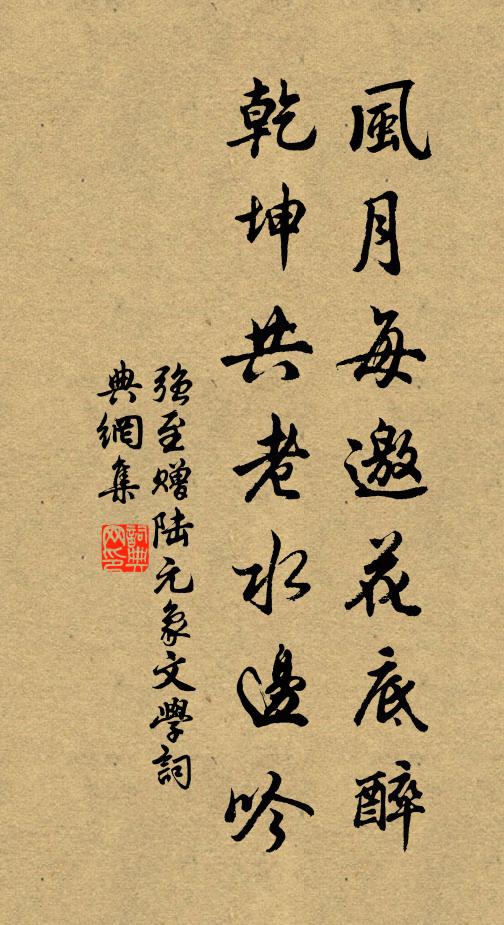 風月每邀花底醉
乾坤共老水邊吟
強至贈陆元象文學詞
典網集
詞典
网印